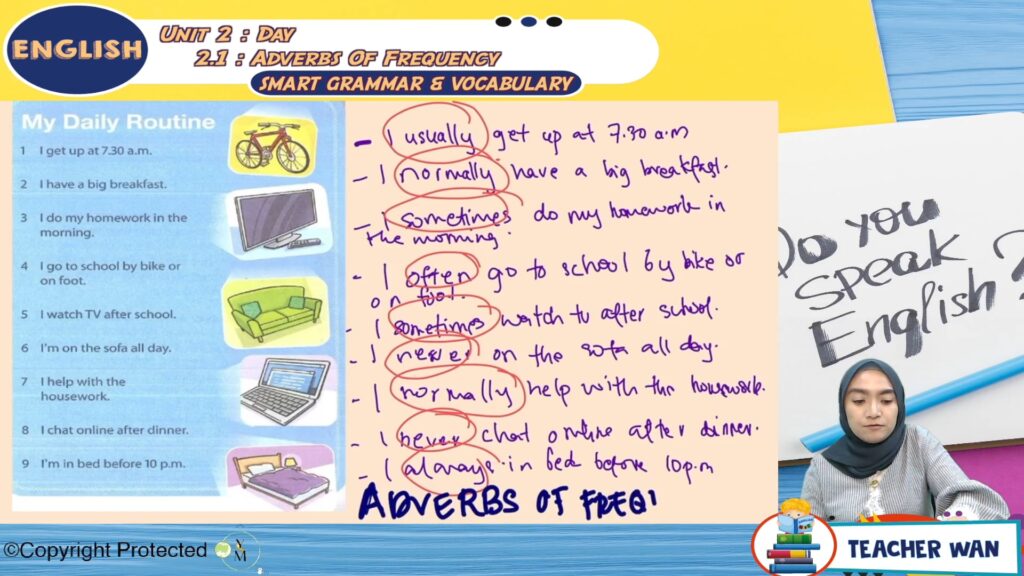 ENGLISH
UNIT 2 : DAY
2.1 : ADVERBS OF FREQUENCY
SMART GRAMMAR & VOCABULARY
My Daily Routine
1 I get up at 7.30 a.m.
2 I have a big breakfast.
3 I do my homework in the
morning.
4 I go to school by bike or
on foot.
5 I watch TV after school.
6 I'm on the sofa all day.
7 I help with the
housework.
8 I chat online after dinner.
9 I'm in bed before 10 p.m.
- I usually get up at 7.30 a.m
- I normally have a big breakfast.
- I sometimes do my homework in
the morning.
- I often go to school by bike or
on foot.
- I sometimes watch tv after school.
- I never on the sofa all day.
- I normally help with the housework.
- I never chat online after dinner.
- I always in bed before 10p.m
ADVERBS OF FREQ
Do you
speak
English?
©Copyright Protected
TEACHER WAN